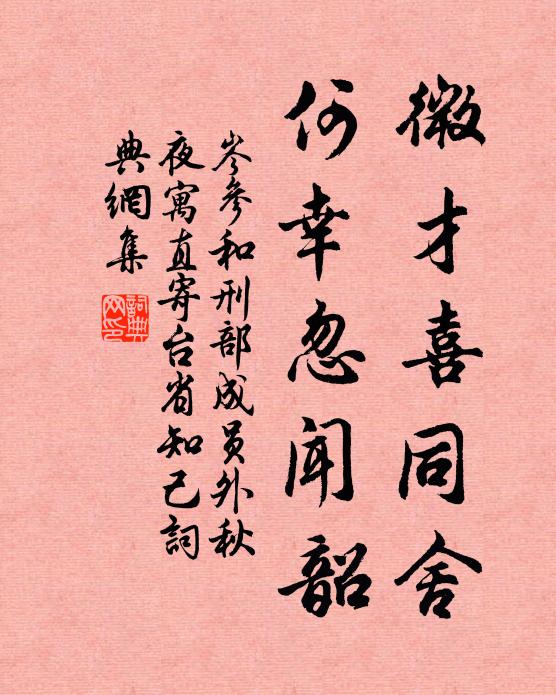 微才喜同舍
何幸忽闻韶
岑參和刑部成员外秋
夜寓直寄台省知己詞
典網集
詞典
网印